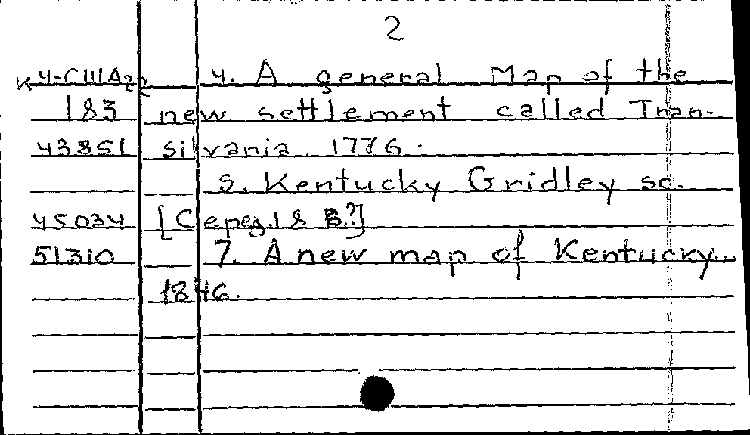 2
К 4-США22 4. A general Map of the
183 new settlement called Tran-
43851 silvania 1776.
5. Kentucky Gridley sc.
45034 [Серед. 18 в.?]
51310 7. A new map of Kentucky..
1846.